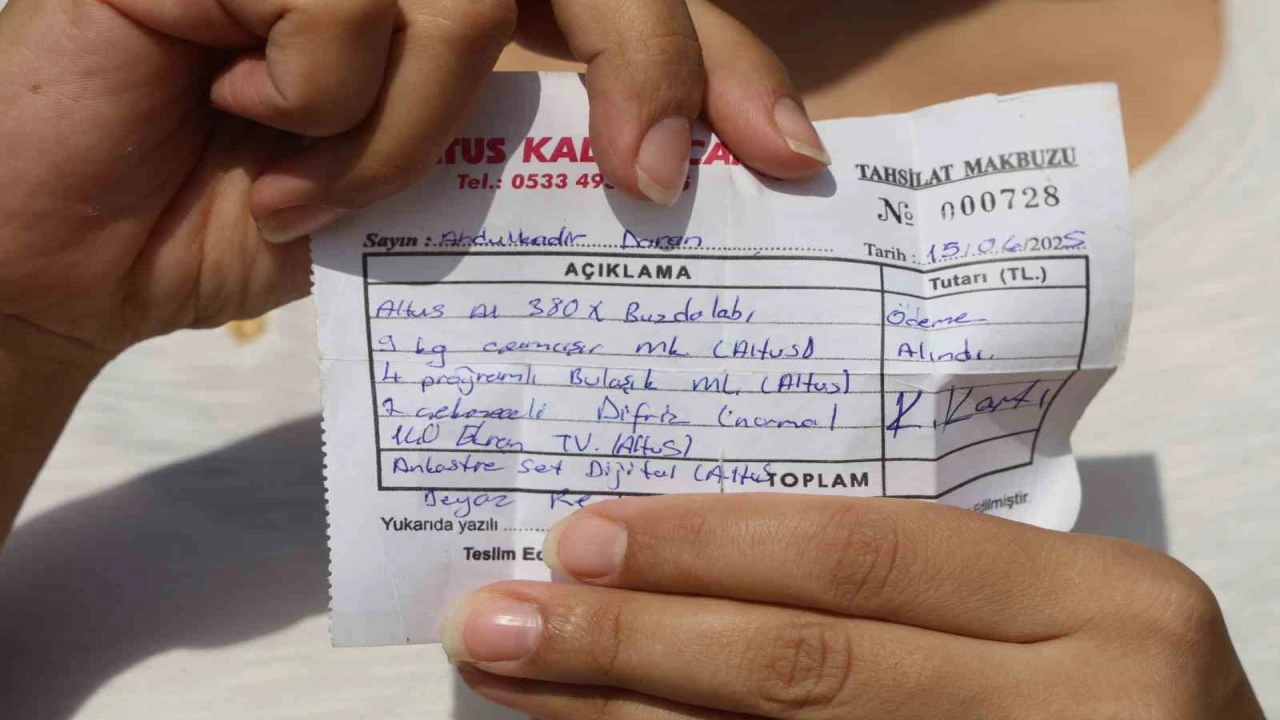 TUS KAL
Tel.: 0533 49
TAHSİLAT MAKBUZU
№ 000728
Sayın : Abdulkadir Daran
Tarih : 15/06/2025
AÇIKLAMA
Tutarı (TL.)
Altus AL 380 X Buzdolabı
Ödeme
9 kg çamaşır mk. (Altus)
Alındı.
4 programlı Bulaşık mk. (Altus)
7 çekmeceli Difriz (normal
K. Kartı
140 Ekran TV. (Altus)
Ankastre Set Dijital (Altus
TOPLAM
Beyaz Re
Yukarıda yazılı
edilmiştir.
Teslim Ed